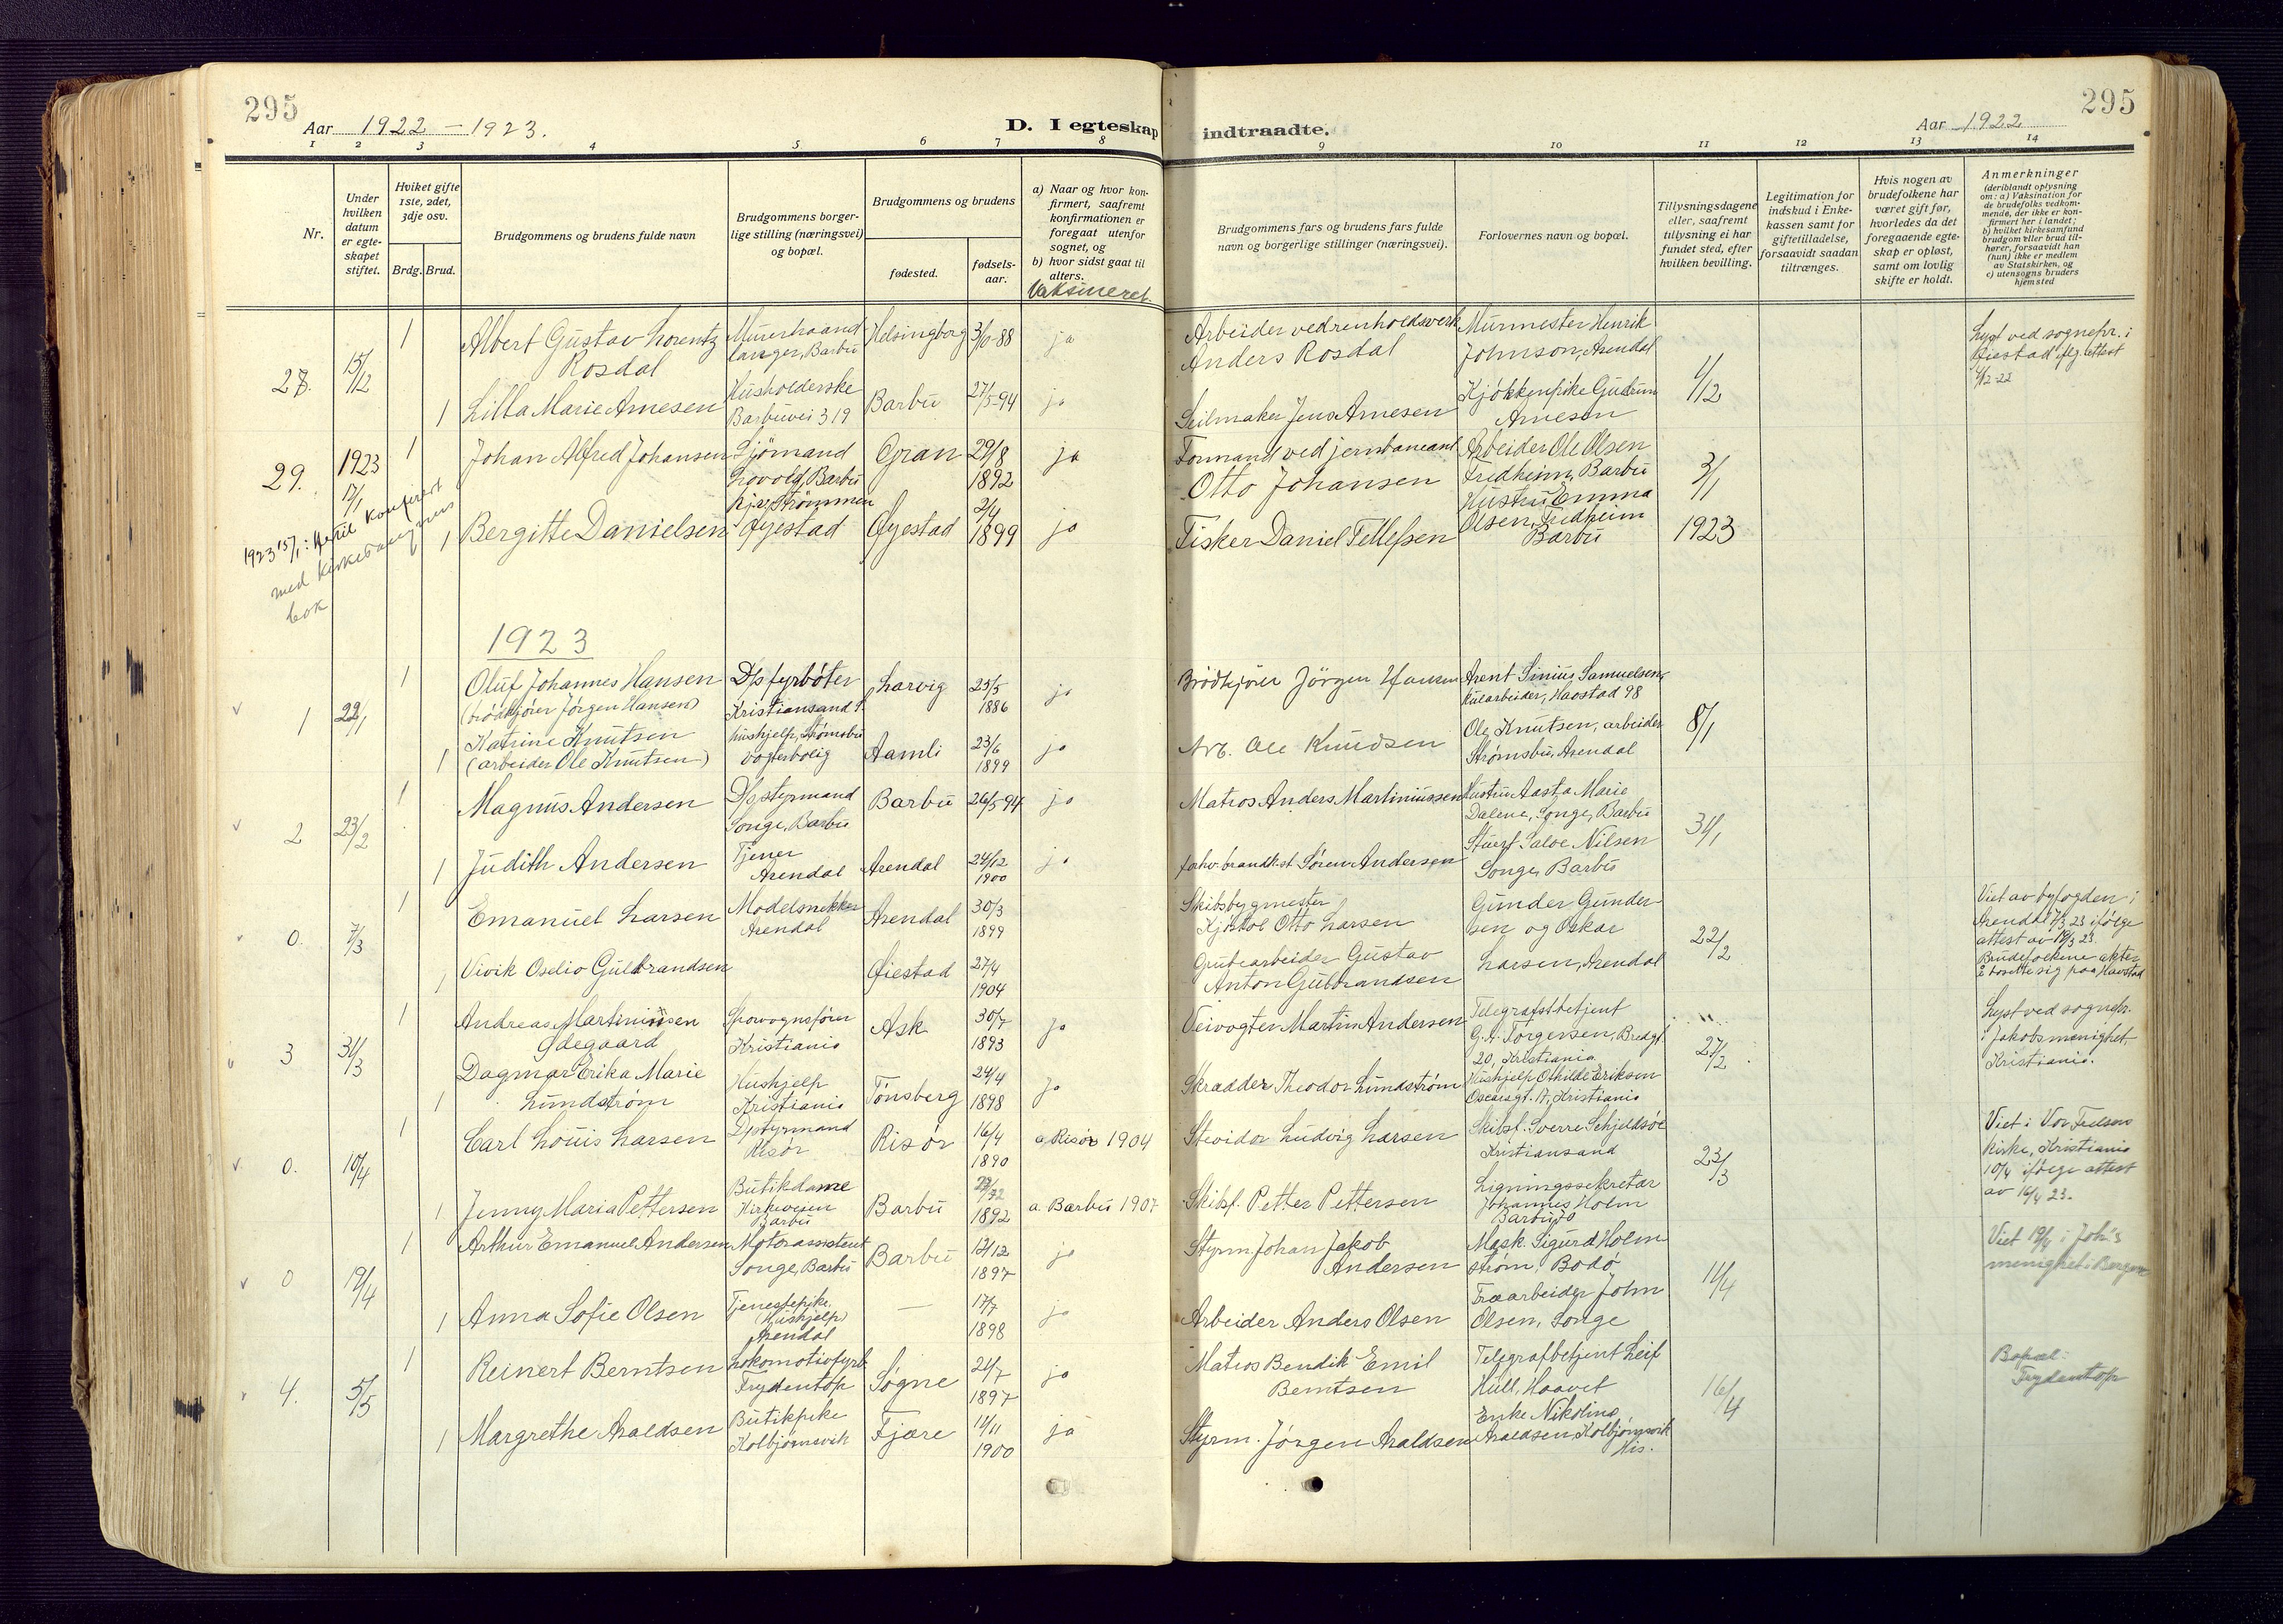 295
Aar 1922 - 1923.
D. I egteskap indtraadte.
Aar 1922
295
1 2 3 4 5 6 7 8 9 10 11 12 13 14
Nr.
Under hvilken datum er egteskapet stiftet.
Hviket gifte 1ste, 2det, 3dje osv.
Brdg. Brud.
Brudgommens og brudens fulde navn
Brudgommens borgerlige stilling (næringsvei) og bopæl.
Brudgommens og brudens
fødested.
fødselsaar.
a) Naar og hvor konfirmert, saafremt konfirmationen er foregaat utenfor sognet, og
b) hvor sidst gaat til alters.
Vaksineret.
Brudgommens fars og brudens fars fulde navn og borgerlige stillinger (næringsvei).
Forlovernes navn og bopæl.
Tillysningsdagene eller, saafremt tillysning ei har fundet sted, efter hvilken bevilling.
Legitimation for indskud i Enkekassen samt for giftetilladelse, forsaavidt saadan tiltrænges.
Hvis nogen av brudefolkene har været gift før, hvorledes da det foregaaende egteskap er opløst, samt om lovlig skifte er holdt.
Anmerkninger
(deriblandt oplysning om: a) Vaksination for de brudefolks vedkommende, der ikke er konfirmert her i landet;
b) hvilket kirkesamfund brudgom eller brud tilhører, forsaavidt han (hun) ikke er medlem av Statskirken, og
c) utensogns bruders hjemsted
28. 15/12
1 Albert Gustav Lorentz Rosdal
Murerhaandlanger, Barbu
Helsingborg 3/10-88 ja
Arbeider ved renholdsverk Anders Rosdal
Murmester Henrik Johnson, Arendal
4/12
Lyst ved sognepr. i Øiestad iflg. attest 4/12-22
1 Lilla Marie Arnesen
Husholderske Barbuvei 319
Barbu 27/5-94 ja
Seilmaker Jens Arnesen
Kjøkkenpike Gudrun Arnesen
29. 1923 17/1
1 Johan Alfred Johansen
Sjömand Lovold, Barbu
Gran 29/8 1892 ja
Formand ved jernbaneanl Otto Johansen
Arbeider Ole Olsen Fredheim, Barbu
3/1 1923
1 Bergitte Danielsen
Strömmen Øyestad
Øyestad 2/4 1899 ja
Fisker Daniel Tellefsen
Hustru Emma Olsen, Fredheim Barbu
1923 15/1: Hertil konferert med kirketangnens bok
1923
1 22/1
1 Oluf Johannes Hansen (brödkjörer Jörgen Hansen)
D/s fyrböter Kristiansand S.
Larvig 25/5 1886 ja
Brödkjörer Jörgen Hansen
Arent Sinius Samuelsen, kularbeider, Havstad 98
8/1
1 Katrine Knutsen (arbeider Ole Knutsen)
Hushjelp, Strømsbu vogterbolig
Aamli 23/6 1899 ja
Arb. Ole Knudsen
Ole Knutsen, arbeider Strømsbu, Arendal
2 23/2
1 Magnus Andersen
D/s styrmand Songe, Barbu
Barbu 26/5-94 ja
Matros Anders Martiniussen
Hustru Aasta Marie Dalene, Songe, Barbu
31/1
1 Judith Andersen
Tjener Arendal
Arendal 24/12 1900 ja
forhv. brandk.st Søren Andersen
Stuert Salve Nilsen Songe, Barbu
0. 7/3
1 Emanuel Larsen
Modelsnekker Arendal
Arendal 30/3 1899
Skibsbygmester Kjøstol Otto Larsen
Gunder Gundersen og Oskar Larsen, Arendal
22/2
Viet av byfogden i Arendal 7/3 23 ifølge attest av 19/3 23. Brudefolkene akter å bosette sig paa Havstad
1 Vivik Oselio Gulbrandsen
Øiestad 27/4 1904
Grubearbeider Gustav Anton Gulbrandsen
3 31/3
1 Andreas Martiniussen Ødegaard
Sporvognsfører Kristiania
Ask 30/7 1893 ja
Veivogter Martin Andersen
Telegrafstbetjent G. A. Torgersen, Bredgt. 20, Kristiania
27/2
Lyst ved sognepr. i Jakobs menighet, Kristiania.
1 Dagmar Erika Marie Lundstrøm
Hushjelp Kristiania
Tønsberg 24/4 1898 ja
Skrædder Theodor Lundstrøm
Hushjelp Othilde Eriksen Oscarsgt. 17, Kristiania
0. 10/4
1 Carl Louis Larsen
D/s styrmand Risør
Risør 16/4 1890 a. Risør 1904
Stevidor Ludvig Larsen
Skibsf. Sverre Schjeldsøe Kristiansand
23/3
Viet i Vor Frelsers kirke, Kristiania 10/4 ifølge attest av 16/4 23.
1 Jenny Maria Pettersen
Butikdame Kirkeveien Barbu
Barbu 1892 a. Barbu 1907
Skibsf. Petter Pettersen
Ligningssekretær Johannes Holm Barbu
0 19/4
1 Arthur Emanuel Andersen
Motorassistent Songe, Barbu
Barbu 12/12 1897 ja
Styrm. Johan Jakob Andersen
Mask. Sigurd Holmstrøm, Bodø
11/4
Viet 19/4 i Joh's menighet. Bergen
1 Anna Sofie Olsen
Tjenestepike (Hushjelp) Arendal
— 17/7 1898 ja
Arbeider Anders Olsen
Træarbeider John Olsen, Songe
4. 5/5
1 Reinert Berntsen
Lokomotivfyrb. Frydentop
Søgne 21/7 1897 ja
Matros Bendik Emil Berntsen
Telegrafbetjent Leif Hull, Haavet
16/4
Bopæl: Frydentop
1 Margrethe Araldsen
Butikpike Kolbjørnsvik
Fjære 11/11 1900 ja
Styrm. Jörgen Araldsen
Enke Nikoline Araldsen, Kolbjørnsvik His.